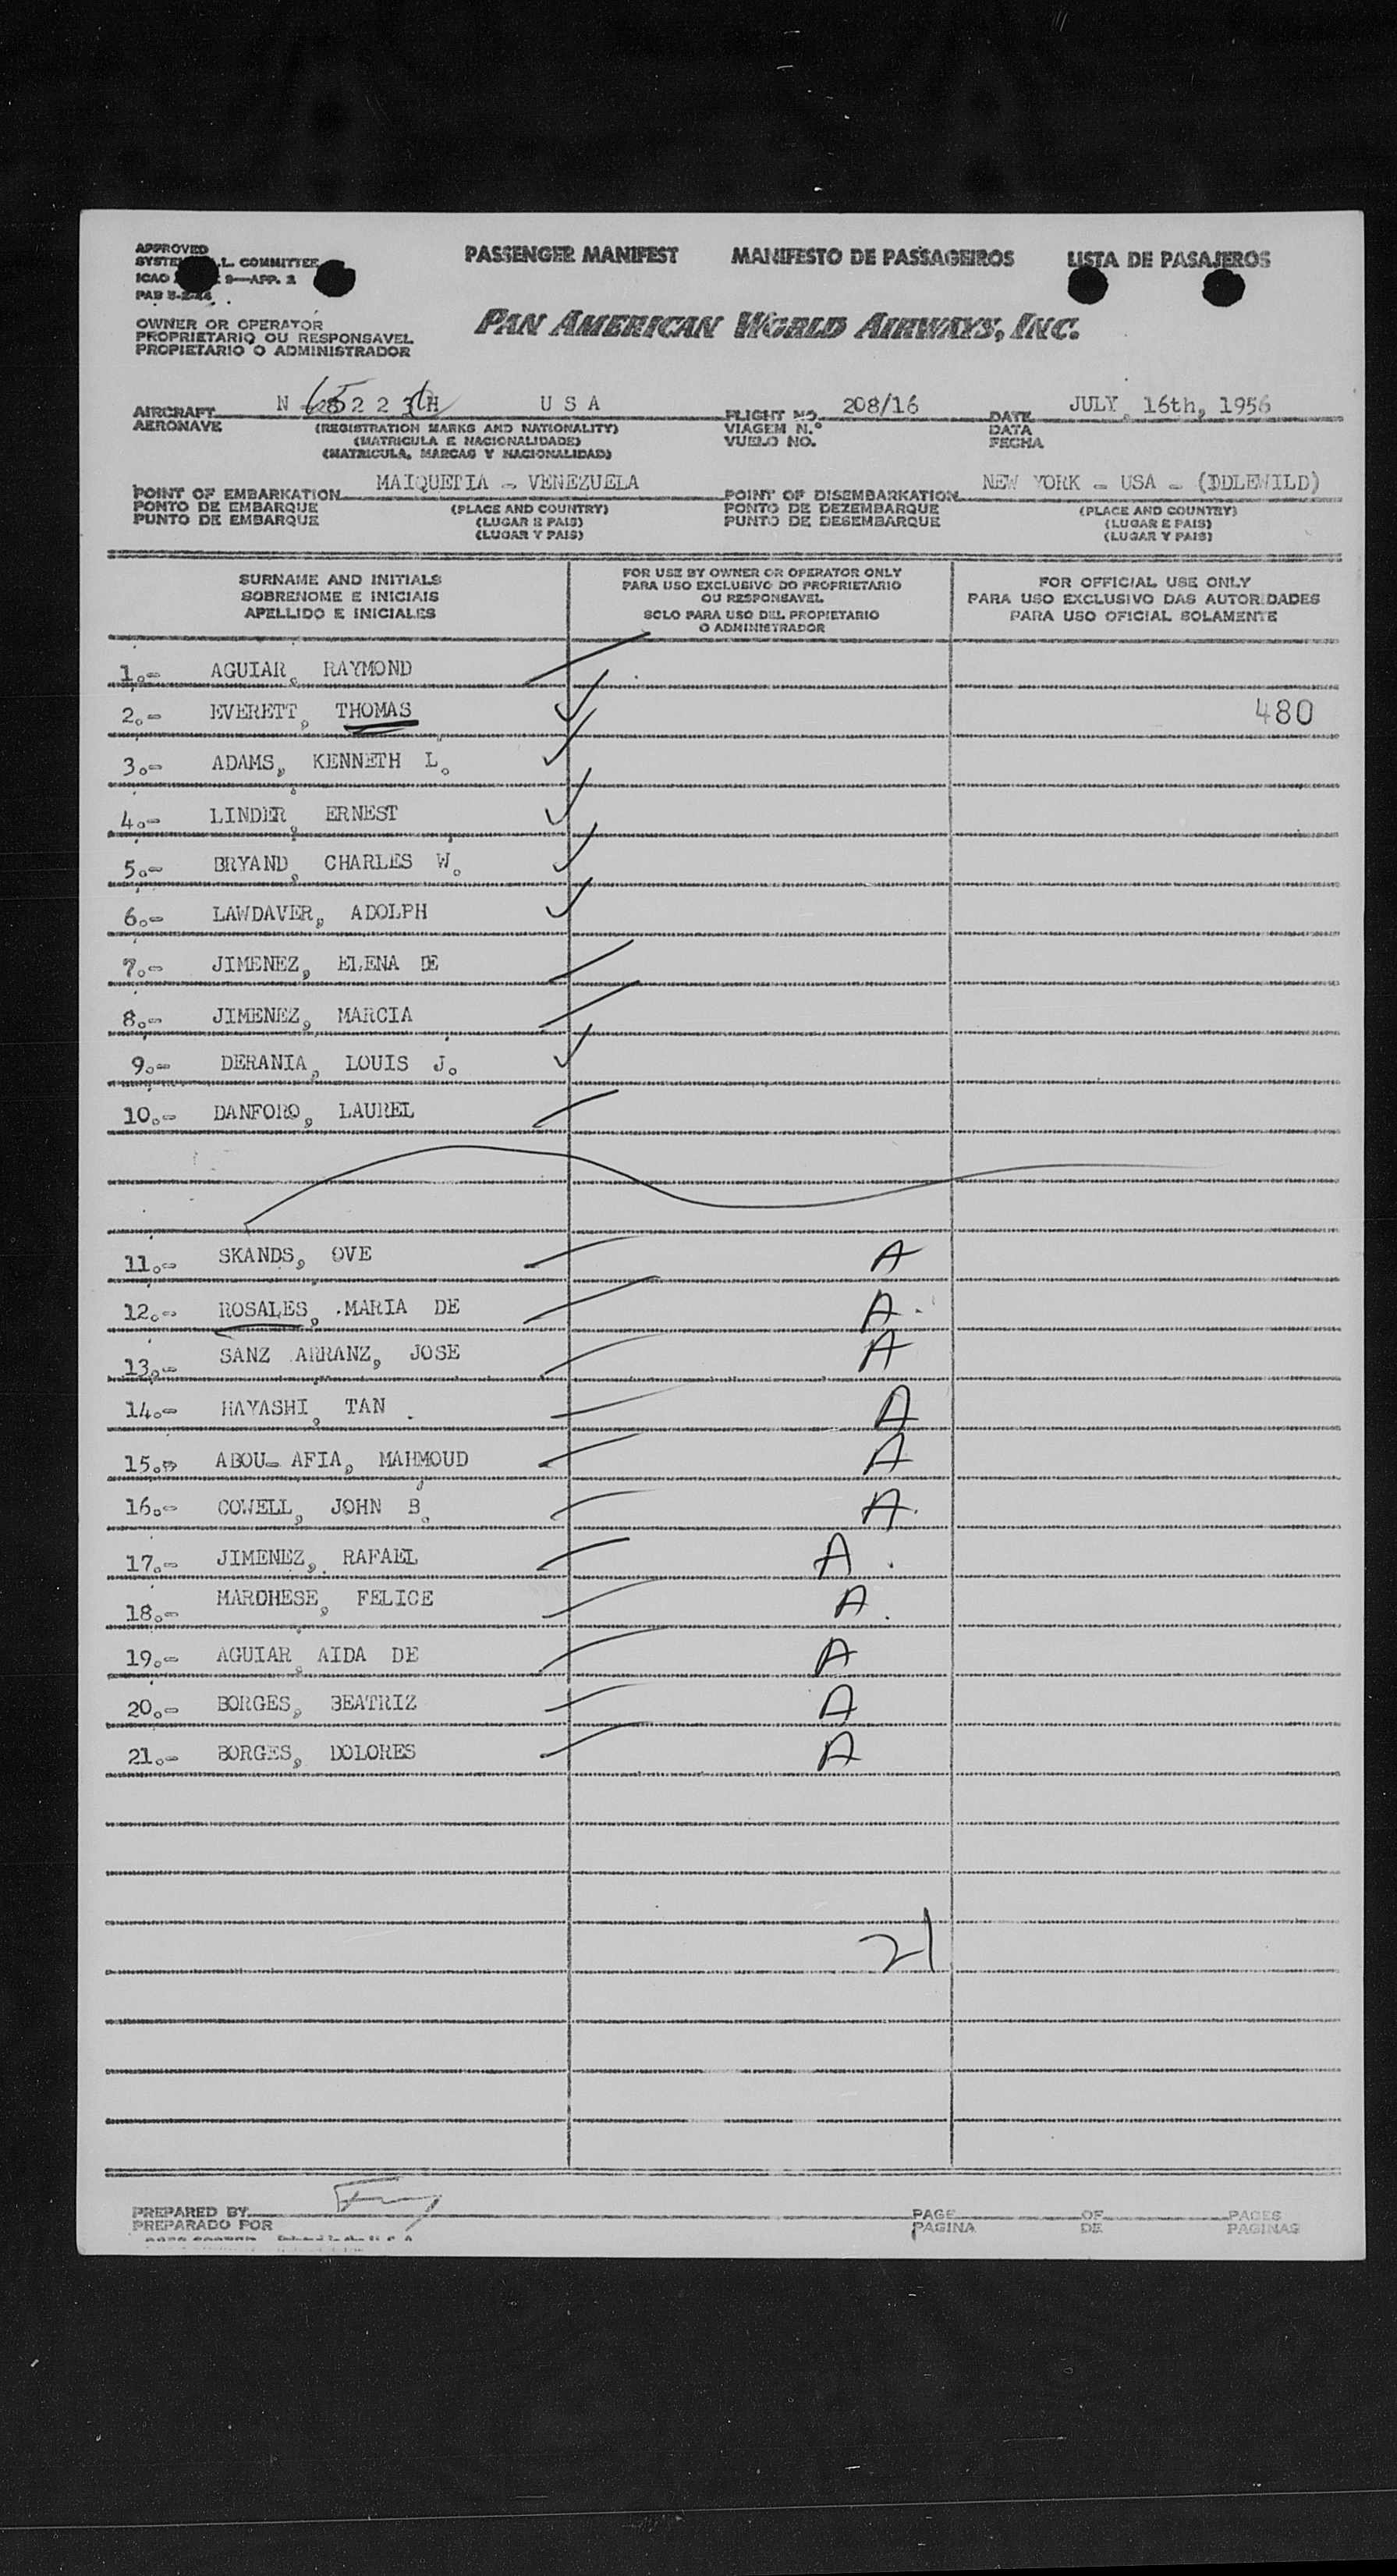 APPROVED
PASSENGER MANIFEST MANIFESTO DE PASSAGEIROS LISTA DE PASAJEROS
L. COMMITTEE
ICAO 9—APP. 2
PAB
OWNER OR OPERATOR
PROPRIETARIO OU RESPONSAVEL
PROPIETARIO O ADMINISTRADOR
PAN AMERICAN WORLD AIRWAYS, INC.
AIRCRAFT N USA FLIGHT NO. 208/16 DATE JULY 16th, 1956
AERONAVE (REGISTRATION MARKS AND NATIONALITY) VIAGEM N.º DATA
(MATRICULA E NACIONALIDADE) VUELO NO. FECHA
(MATRICULA, MARCAS Y NACIONALIDAD)
POINT OF EMBARKATION MAIQUETIA - VENEZUELA POINT OF DISEMBARKATION NEW YORK - USA - (IDLEWILD)
PONTO DE EMBARQUE (PLACE AND COUNTRY) PONTO DE DEZEMBARQUE (PLACE AND COUNTRY)
PUNTO DE EMBARQUE (LUGAR E PAIS) PUNTO DE DESEMBARQUE (LUGAR E PAIS)
(LUGAR Y PAIS) (LUGAR Y PAIS)
SURNAME AND INITIALS
SOBRENOME E INICIAIS
APELLIDO E INICIALES
FOR USE BY OWNER OR OPERATOR ONLY
PARA USO EXCLUSIVO DO PROPRIETARIO
OU RESPONSAVEL
SOLO PARA USO DEL PROPIETARIO
O ADMINISTRADOR
FOR OFFICIAL USE ONLY
PARA USO EXCLUSIVO DAS AUTORIDADES
PARA USO OFICIAL SOLAMENTE
1.- AGUIAR, RAYMOND
2.- EVERETT, THOMAS 480
3.- ADAMS, KENNETH L.
4.- LINDER, ERNEST
5.- BRYAND, CHARLES W.
6.- LAWDAVER, ADOLPH
7.- JIMENEZ, ELENA DE
8.- JIMENEZ, MARCIA
9.- DERANIA, LOUIS J.
10.- DANFORD, LAUREL
11.- SKANDS, OVE A
12.- ROSALES, MARIA DE A
13.- SANZ ARRANZ, JOSE A
14.- HAYASHI, TAN A
15.- ABOU- AFIA, MAHMOUD A
16.- COWELL, JOHN B. A
17.- JIMENEZ, RAFAEL A
18.- MARDHESE, FELICE A
19.- AGUIAR, AIDA DE A
20.- BORGES, BEATRIZ A
21.- BORGES, DOLORES A
21
PREPARED BY PAGE OF PAGES
PREPARADO POR PAGINA DE PAGINAS